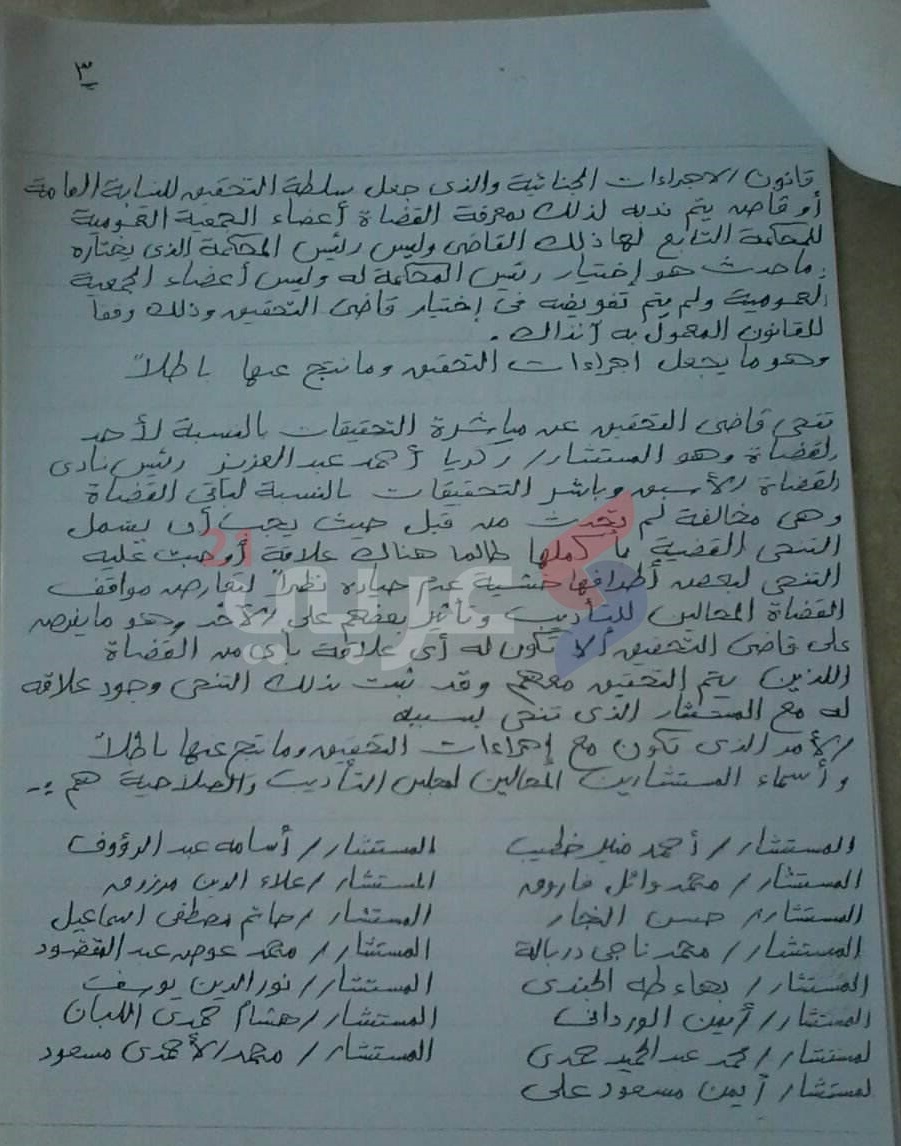 ٣
قانون الاجراءات الجنائية والذى جعل سلطة التحقيق للنيابة العامة
أو قاض يتم ندبه لذلك بمعرفة القضاة أعضاء الجمعية العمومية
للمحكمة التابع لها ذلك القاضى وليس رئيس المحكمة الذى يختاره
ماحدث هو إختيار رئيس المحكمة له وليس أعضاء الجمعية
العمومية ولم يتم تفويضه فى إختيار قاضى التحقيق وذلك وفقاً
للقانون المعمول به آنذاك .
وهو ما يجعل اجراءات التحقيق وماينتج عنها باطلاً
تنحى قاضى التحقيق عن مباشرة التحقيقات بالنسبة لأحد
القضاة وهو المستشار/ زكريا أحمد عبدالعزيز رئيس نادى
القضاة الأسبق وباشر التحقيقات بالنسبة لباقى القضاة
وهى مخالفة لم تحدث من قبل حيث يجب أن يشمل
التنحى القضية بأكملها طالما هناك علاقة أوجبت عليه
التنحى لبعض أطرافها خشية عدم حياده نظراً لتعارض مواقف
القضاة المحالين للتأديب وتأثير بعضهم على الآخر وهو مايفرض
على قاضى التحقيق ألا تكون له أى علاقة بأى من القضاة
اللذين يتم التحقيق معهم وقد ثبت بذلك التنحى وجود علاقه
له مع المستشار الذى تنحى بسببه
الأمر الذى تكون مع إجراءات التحقيق وماينتج عنها باطلاً
وأسماء المستشارين المحالين لمجلس التأديب والصلاحية هم :-
المستشار/ أحمد منير خطيب المستشار/ أسامه عبد الرؤوف
المستشار/ محمد وائل فاروق المستشار/ علاء الدين مرزوق
المستشار/ حسن النجار المستشار/ حاتم مصطفى اسماعيل
المستشار/ محمد ناجى دربالة المستشار/ محمد عوض عبد المقصود
المستشار/ بهاء طه الجندى المستشار/ نور الدين يوسف
المستشار/ أيمن الوردانى المستشار/ هشام حمدى اللبان
لمستشار/ محمد عبد الحميد حمدى المستشار/ محمد الأحمدى مسعود
لمستشار/ أيمن مسعود على
عربي 21